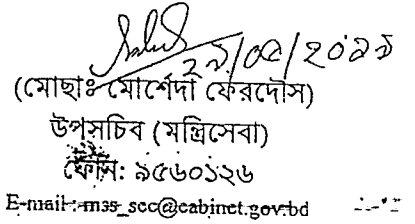 ২৯/০৫/২০১৯
(মোছাঃ মোর্শেদা ফেরদৌস)
উপসচিব (মন্ত্রিসেবা)
ফোন: ৯৫৬০১২৬
E-mail: mss_sec@cabinet.gov.bd